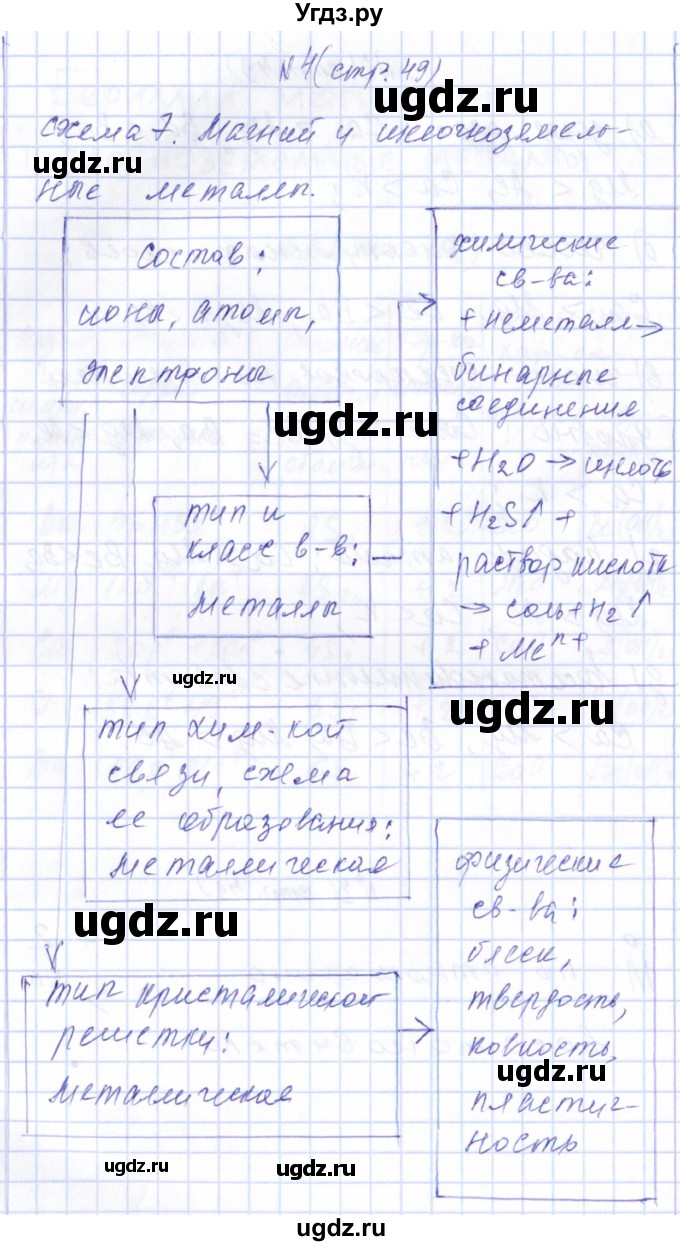 Угдз.ру
№4(стр.49)
ugdz.ru
схема 7. Магний и щелочноземель-
ugdz.ru
ные металлы.
Состав:
ионы, атомы,
электроны
ugdz.ru
химические
св-ва:
+неметалл→
бинарные
соединения
+H₂O→щелочь
+H₂S↑+
раствор кислоты
→соль+H₂↑
+Meⁿ⁺
тип и
класс в-в:
металлы
ugdz.ru
ugdz.ru
тип хим-кой
связи, схема
ее образования:
металлическая
ugdz.ru
тип кристалической
решетки:
металлическая
физические
св-ва:
блеск,
твердость,
ковкость,
ugdz.ru
пластич-
ность
ugdz.ru
ugdz.ru
ugdz.ru